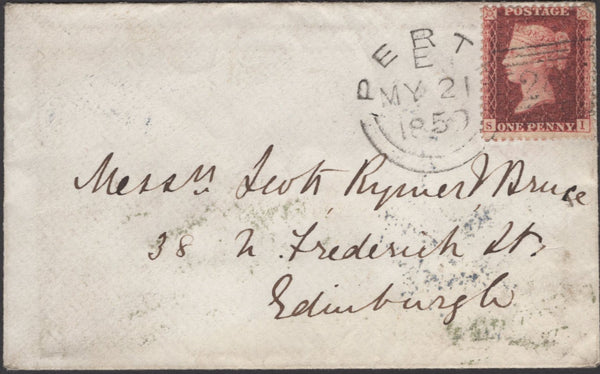 PERT
E
MY 21
1859
POSTAGE
S ONE PENNY I
Messrs Scott Rymer & Bruce
38 N. Frederick St.
Edinburgh